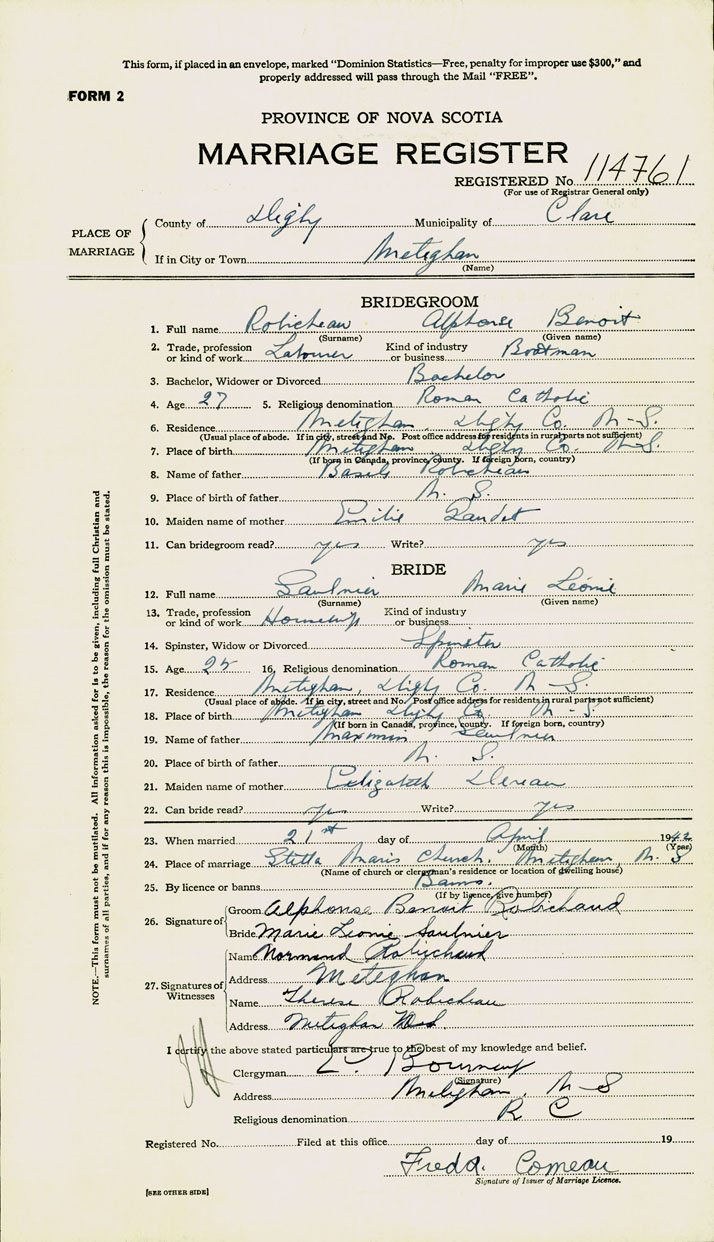 This form, if placed in an envelope, marked "Dominion Statistics—Free, penalty for improper use $300," and
properly addressed will pass through the Mail "FREE".
FORM 2
PROVINCE OF NOVA SCOTIA
MARRIAGE REGISTER
REGISTERED No. 114761
(For use of Registrar General only)
PLACE OF MARRIAGE
County of Digby Municipality of Clare
If in City or Town Meteghan
(Name)
BRIDEGROOM
1. Full name Robicheau Alphonse Benoit
(Surname) (Given name)
2. Trade, profession or kind of work Labourer Kind of industry or business Boatman
3. Bachelor, Widower or Divorced Bachelor
4. Age 27 5. Religious denomination Roman Catholic
6. Residence Meteghan, Digby Co. N-S.
(Usual place of abode. If in city, street and No. Post office address for residents in rural parts not sufficient)
7. Place of birth Meteghan, Digby Co. N-S.
(If born in Canada, province, county. If foreign born, country)
8. Name of father Robicheau
9. Place of birth of father N. S.
10. Maiden name of mother Emilie Gaudet
11. Can bridegroom read? yes Write? yes
BRIDE
12. Full name Saulnier Marie Léonie
(Surname) (Given name)
13. Trade, profession or kind of work Kind of industry or business
14. Spinster, Widow or Divorced Spinster
15. Age 25 16, Religious denomination Roman Catholic
17. Residence Meteghan, Digby Co. N-S.
(Usual place of abode. If in city, street and No. Post office address for residents in rural parts not sufficient)
18. Place of birth Meteghan Digby Co. N-S.
(If born in Canada, province, county. If foreign born, country)
19. Name of father Saulnier
20. Place of birth of father N. S.
21. Maiden name of mother
22. Can bride read? yes Write? yes
23. When married 21st day of April 1942
(Month) (Year)
24. Place of marriage Stella Maris Church, Meteghan, N. S
(Name of church or clergyman's residence or location of dwelling house)
25. By licence or banns Banns.
(If by licence, give number)
26. Signature of
Groom Alphonse Benoit Robichaud
Bride Marie Leonie Saulnier
27. Signatures of Witnesses
Name Normand Robichaud
Address Meteghan
Name Therese Robicheau
Address Meteghan
I certify the above stated particulars are true to the best of my knowledge and belief.
Clergyman
(Signature)
Address Meteghan, N-S
Religious denomination R C
Registered No. Filed at this office day of 19
Fred A. Comeau
Signature of Issuer of Marriage Licence.
[SEE OTHER SIDE]
NOTE.—This form must not be mutilated. All information asked for is to be given, including full Christian and
surnames of all parties, and if for any reason this is impossible, the reason for the omission must be stated.